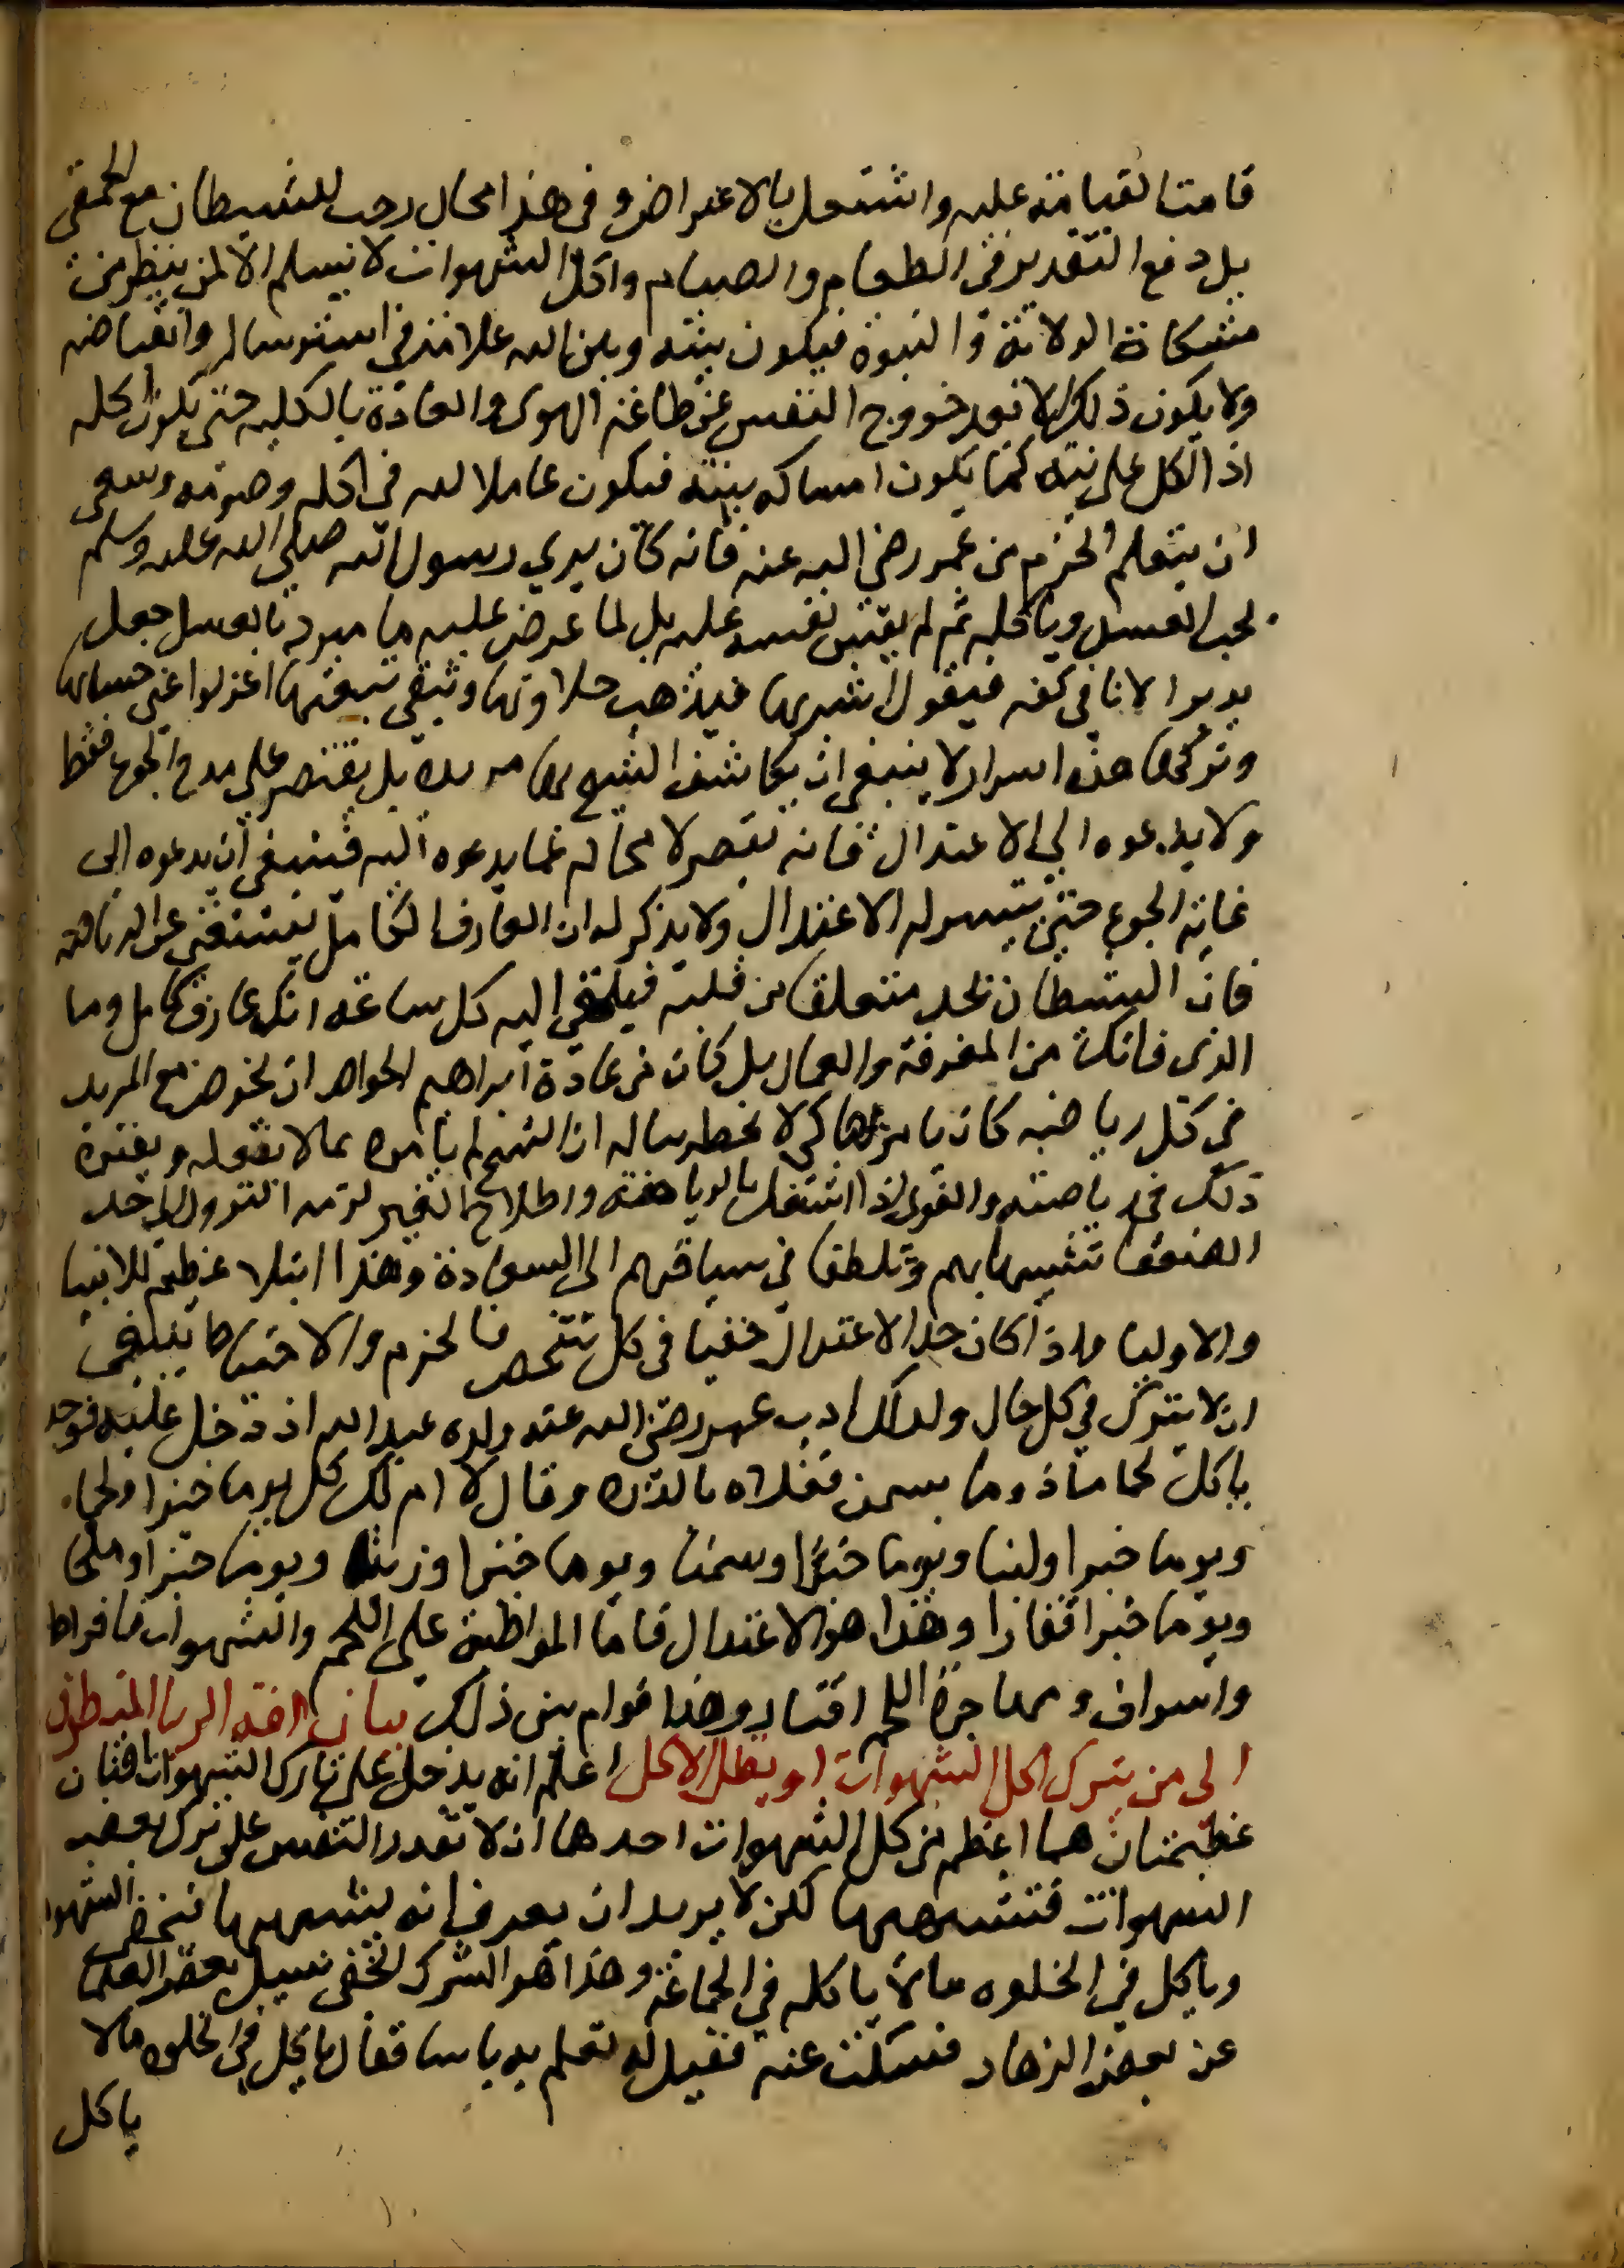 قامت القيامة عليه واشتغل بالاعتراض وفى هذا مجال رحب للشيطان مع الحمقى
بل دفع التقدير فى الطعام والصيام واكل الشهوات لا يسلم الا لمن ينظر من
مشكاة الولاية والنبوة فيكون بينه وبين الله علامة فى استرساله وانقباضه
ولا يكون ذلك الا بعد خروج النفس عن طاعة الهوى والعادة بالكليه حتى يكون اكله
اذا اكل على نية كما يكون امساكه بنية فيكون عاملا لله فى اكله وصومه وينبغى
ان يتعلم الحزم من عمر رضى الله عنه فانه كان يري رسول الله صلى الله عليه وسلم
يحب العسل وياكله ثم لم يقس نفسه عليه بل لما عرض عليه ما مبرد بالعسل جعل
يدير الانا فى كفه فيقول اشربها فيذهب حلاوتها وتبقى تبعتها اعزلوا عنى حسابها
وتركها هذه اسرار لا ينبغى ان يكاشف الشيخ بها مريده بل يقتصر على مدح الجوع فقط
ولا يدعوه الى الاعتدال فانه يقصر لا محاله عما يدعوه اليه فينبغى ان يدعوه الى
غاية الجوع حتى يتيسر له الاعتدال ولا يذكر له ان العارف الكامل يستغنى عن الرياضه
فان الشيطان يجد متعلقا من قلبه فيلقى اليه كل ساعة انك عارف كامل وما
الذى فاتك من المعرفة والكمال بل كان من عادة ابراهيم الخواص ان يخوض مع المريد
فى كل رياضة كان يامره بها كى لا يخطر بباله ان الشيخ لم يامره بما لا يفعله وينفره
ذلك فى رياضته والقوى اذا اشتغل بالرياضة واصلاح الغير لزمه النزول الى حد
الضعفا تشبها بهم وتلطفا فى سياقهم الى السعادة وهذا ابتلا عظيم للانبيا
والاوليا واذا كان حد الاعتدال خفيا فى كل شخص فالحزم والاحتياط ينبغى
ان لا يترك فى كل حال ولذلك ادب عمر رضى الله عنه ولده عبد الله اذ دخل عليه فوجده
ياكل لحما مأدوما بسمن فعلاه بالدره وقال لا ام لك كل يوما خبزا ولحما
ويوما خبزا ولبنا ويوما خبزا وسمنا ويوما خبزا وزيتا ويوما خبزا وملحا
ويوما خبزا قفارا وهذا هو الاعتدال فاما المواظبة على اللحم والشهوات فافراط
واسراف ومهاجرة اللحم اقتار وهذا قوام بين ذلك بيان افة الريا المتطرق
الى من يترك اكل الشهوات او يقلل الاكل اعلم انه يدخل على تارك الشهوات افتان
عظيمتان هما اعظم من كل الشهوات احدهما ان لا تقدر النفس على ترك بعض
الشهوات فتشتهيها لكن لا يريد ان يعرف انه يشتهيها فيخفى الشهوة
وياكل فى الخلوه مالا ياكله فى الجماعة وهذا هو الشرك الخفى سيل بعض العلما
عن بعض الزهاد فسكت عنه فقيل له تعلم به باسا فقال ياكل فى الخلوه مالا
ياكل